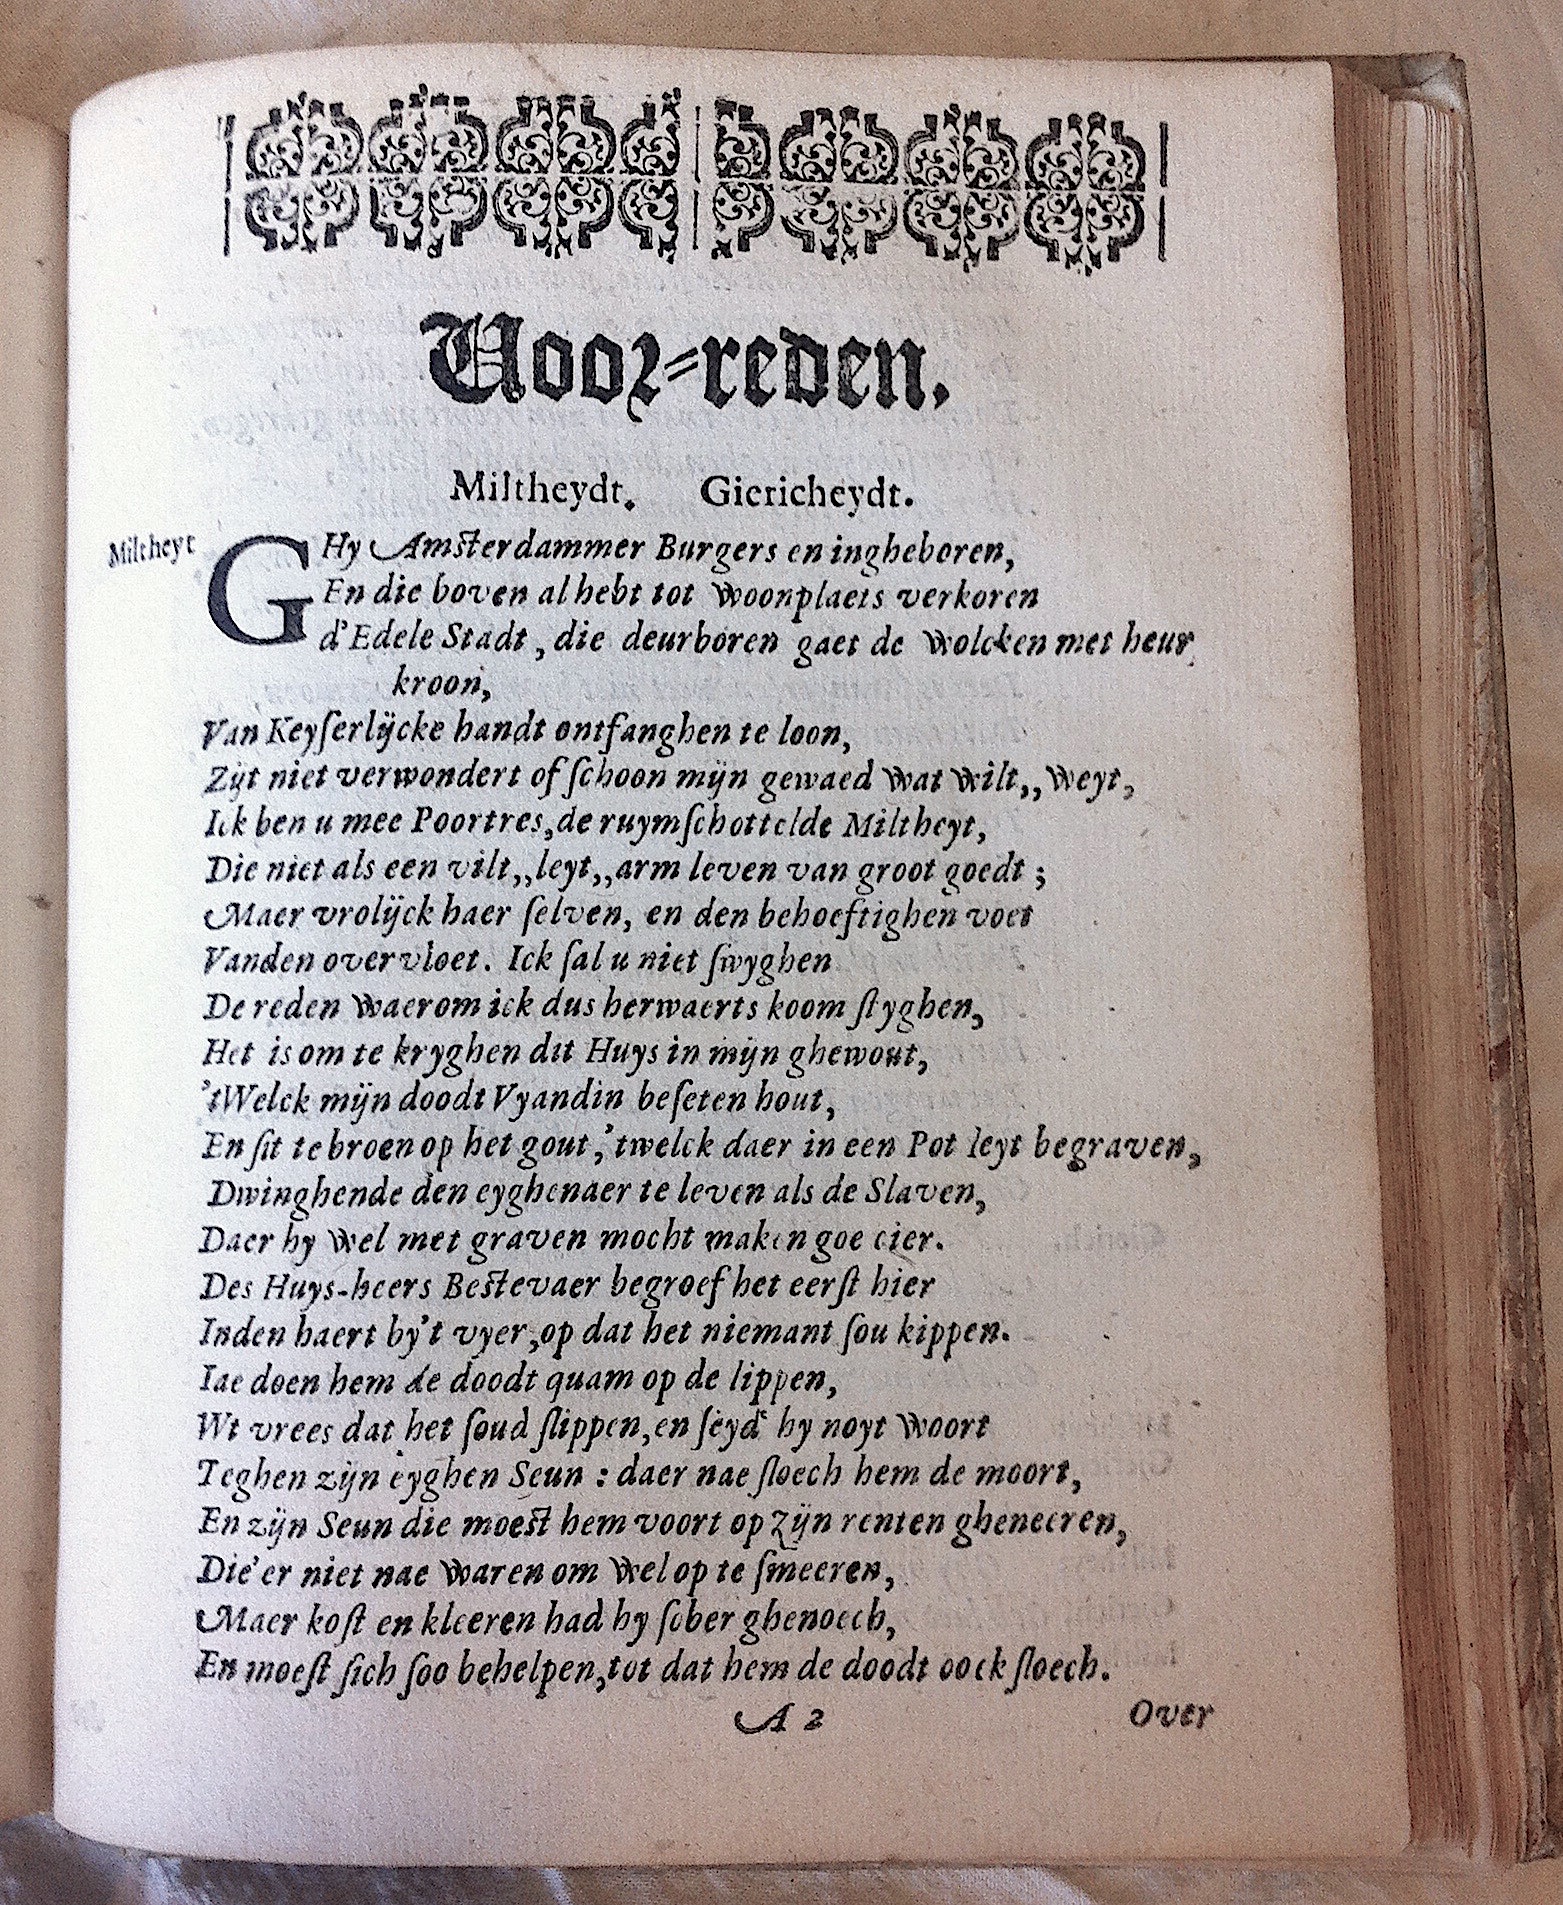 Voor-reden.
Miltheydt. Giericheydt.
Miltheyt GHy Amsterdammer Burgers en ingheboren,
En die boven al hebt tot woonplaets verkoren
d'Edele Stadt, die deurboren gaet de wolcken met heur
kroon,
Van Keyſerlijcke handt ontfanghen te loon,
Zijt niet verwondert of ſchoon mijn gewaed wat wilt,, weyt,
Ick ben u mee Poortres, de ruymſchottelde Miltheyt,
Die niet als een vilt,,leyt,,arm leven van groot goedt;
Maer vrolijck haer ſelven, en den behoeftighen voet
Vanden overvloet. Ick ſal u niet ſwyghen
De reden waerom ick dus herwaerts koom ſtyghen,
Het is om te kryghen dit Huys in mijn ghewout,
'tWelck mijn doodt Vyandin beſeten hout,
En ſit te broen op het gout,'twelck daer in een Pot leyt begraven,
Dwinghende den eyghenaer te leven als de Slaven,
Daer hy wel met graven mocht maken goe cier.
Des Huys-heers Bestevaer begroef het eerſt hier
Inden haert by't vyer,op dat het niemant ſou kippen.
Iae doen hem de doodt quam op de lippen,
Wt vrees dat het ſoud ſlippen,en ſeyd' hy noyt woort
Teghen zijn eyghen Seun : daer nae ſloech hem de moort,
En zijn Seun die moest hem voort op zijn renten gheneeren,
Die'er niet nae waren om wel op te ſmeeren,
Maer koſt en kleeren had hy ſober ghenoech,
En moeſt ſich ſoo behelpen,tot dat hem de doodt oock ſloech.
A 2 Over